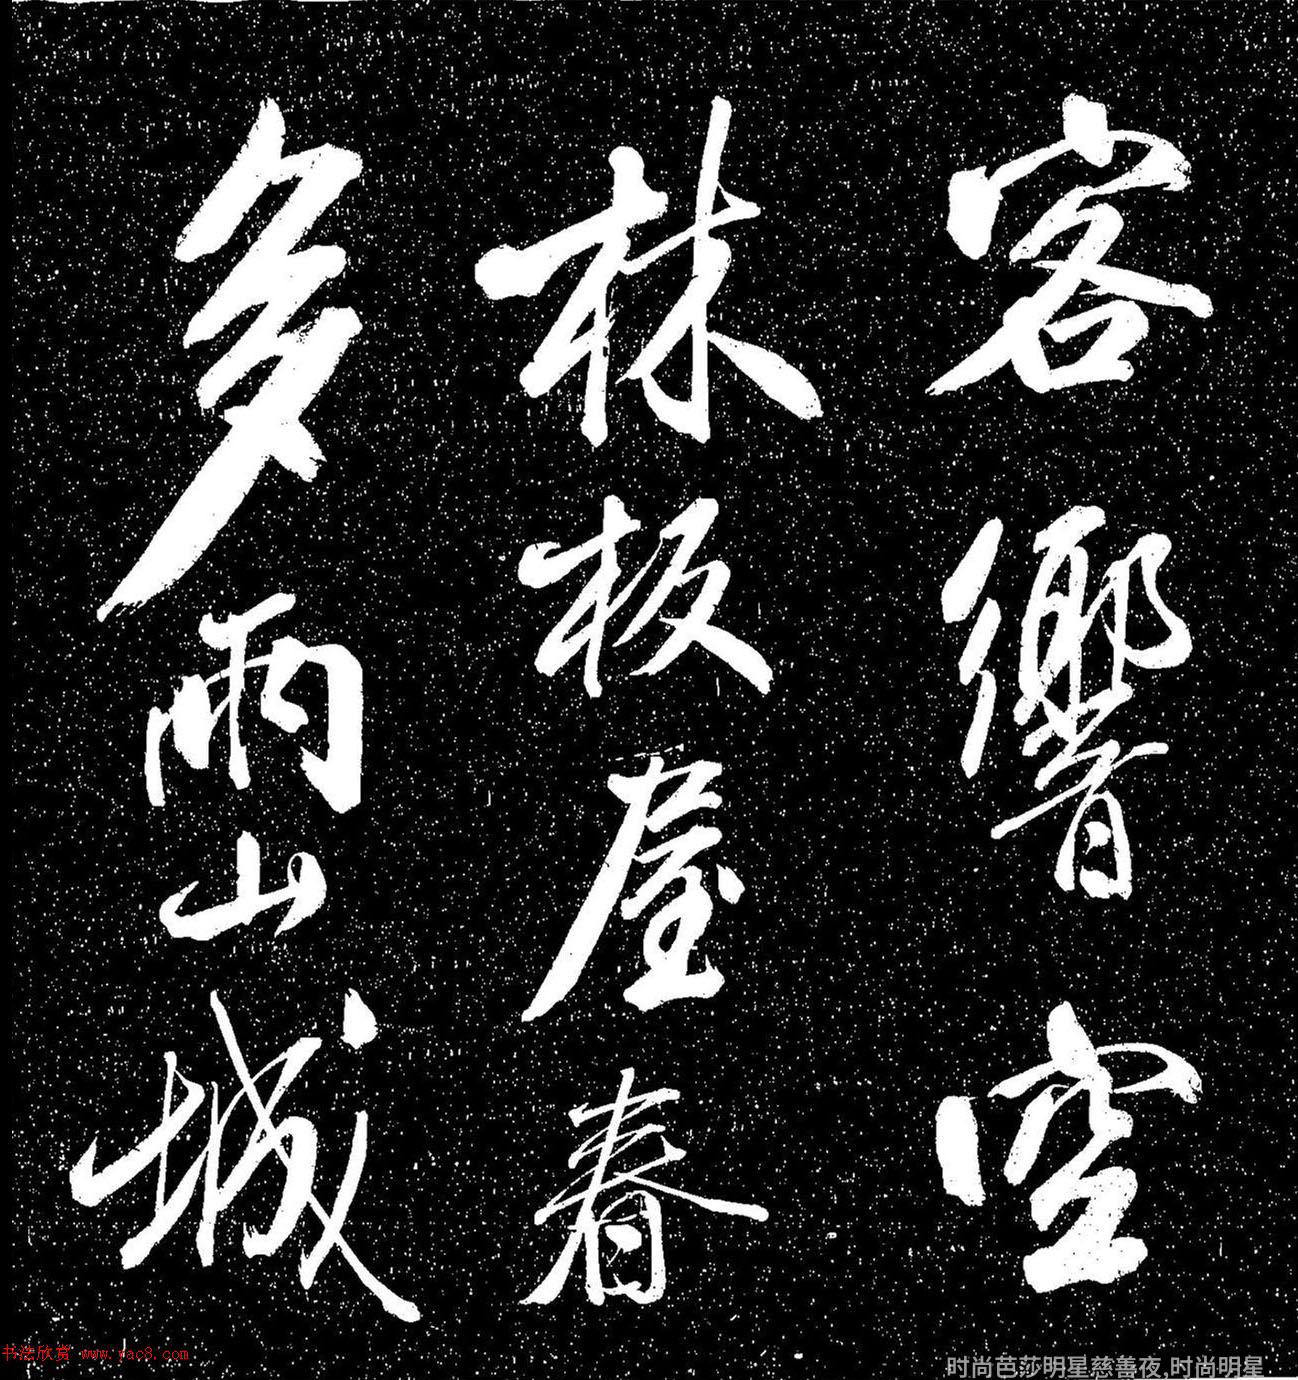 客響空
林板屋春
多雨山城
书法欣赏 www.yac8.com
时尚芭莎明星慈善夜,时尚明星